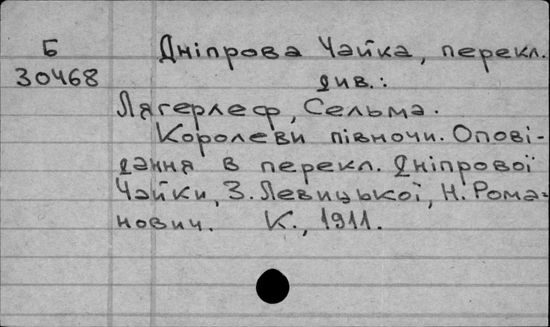 Б
30468
Дніпрова Чайка, перекл.
див.:
Лягерлеф, Сельма.
Королеви півночи. Опові-
дання в перекл. Дніпрової
Чайки, З. Левицької, Н. Рома-
нович. К., 1911.